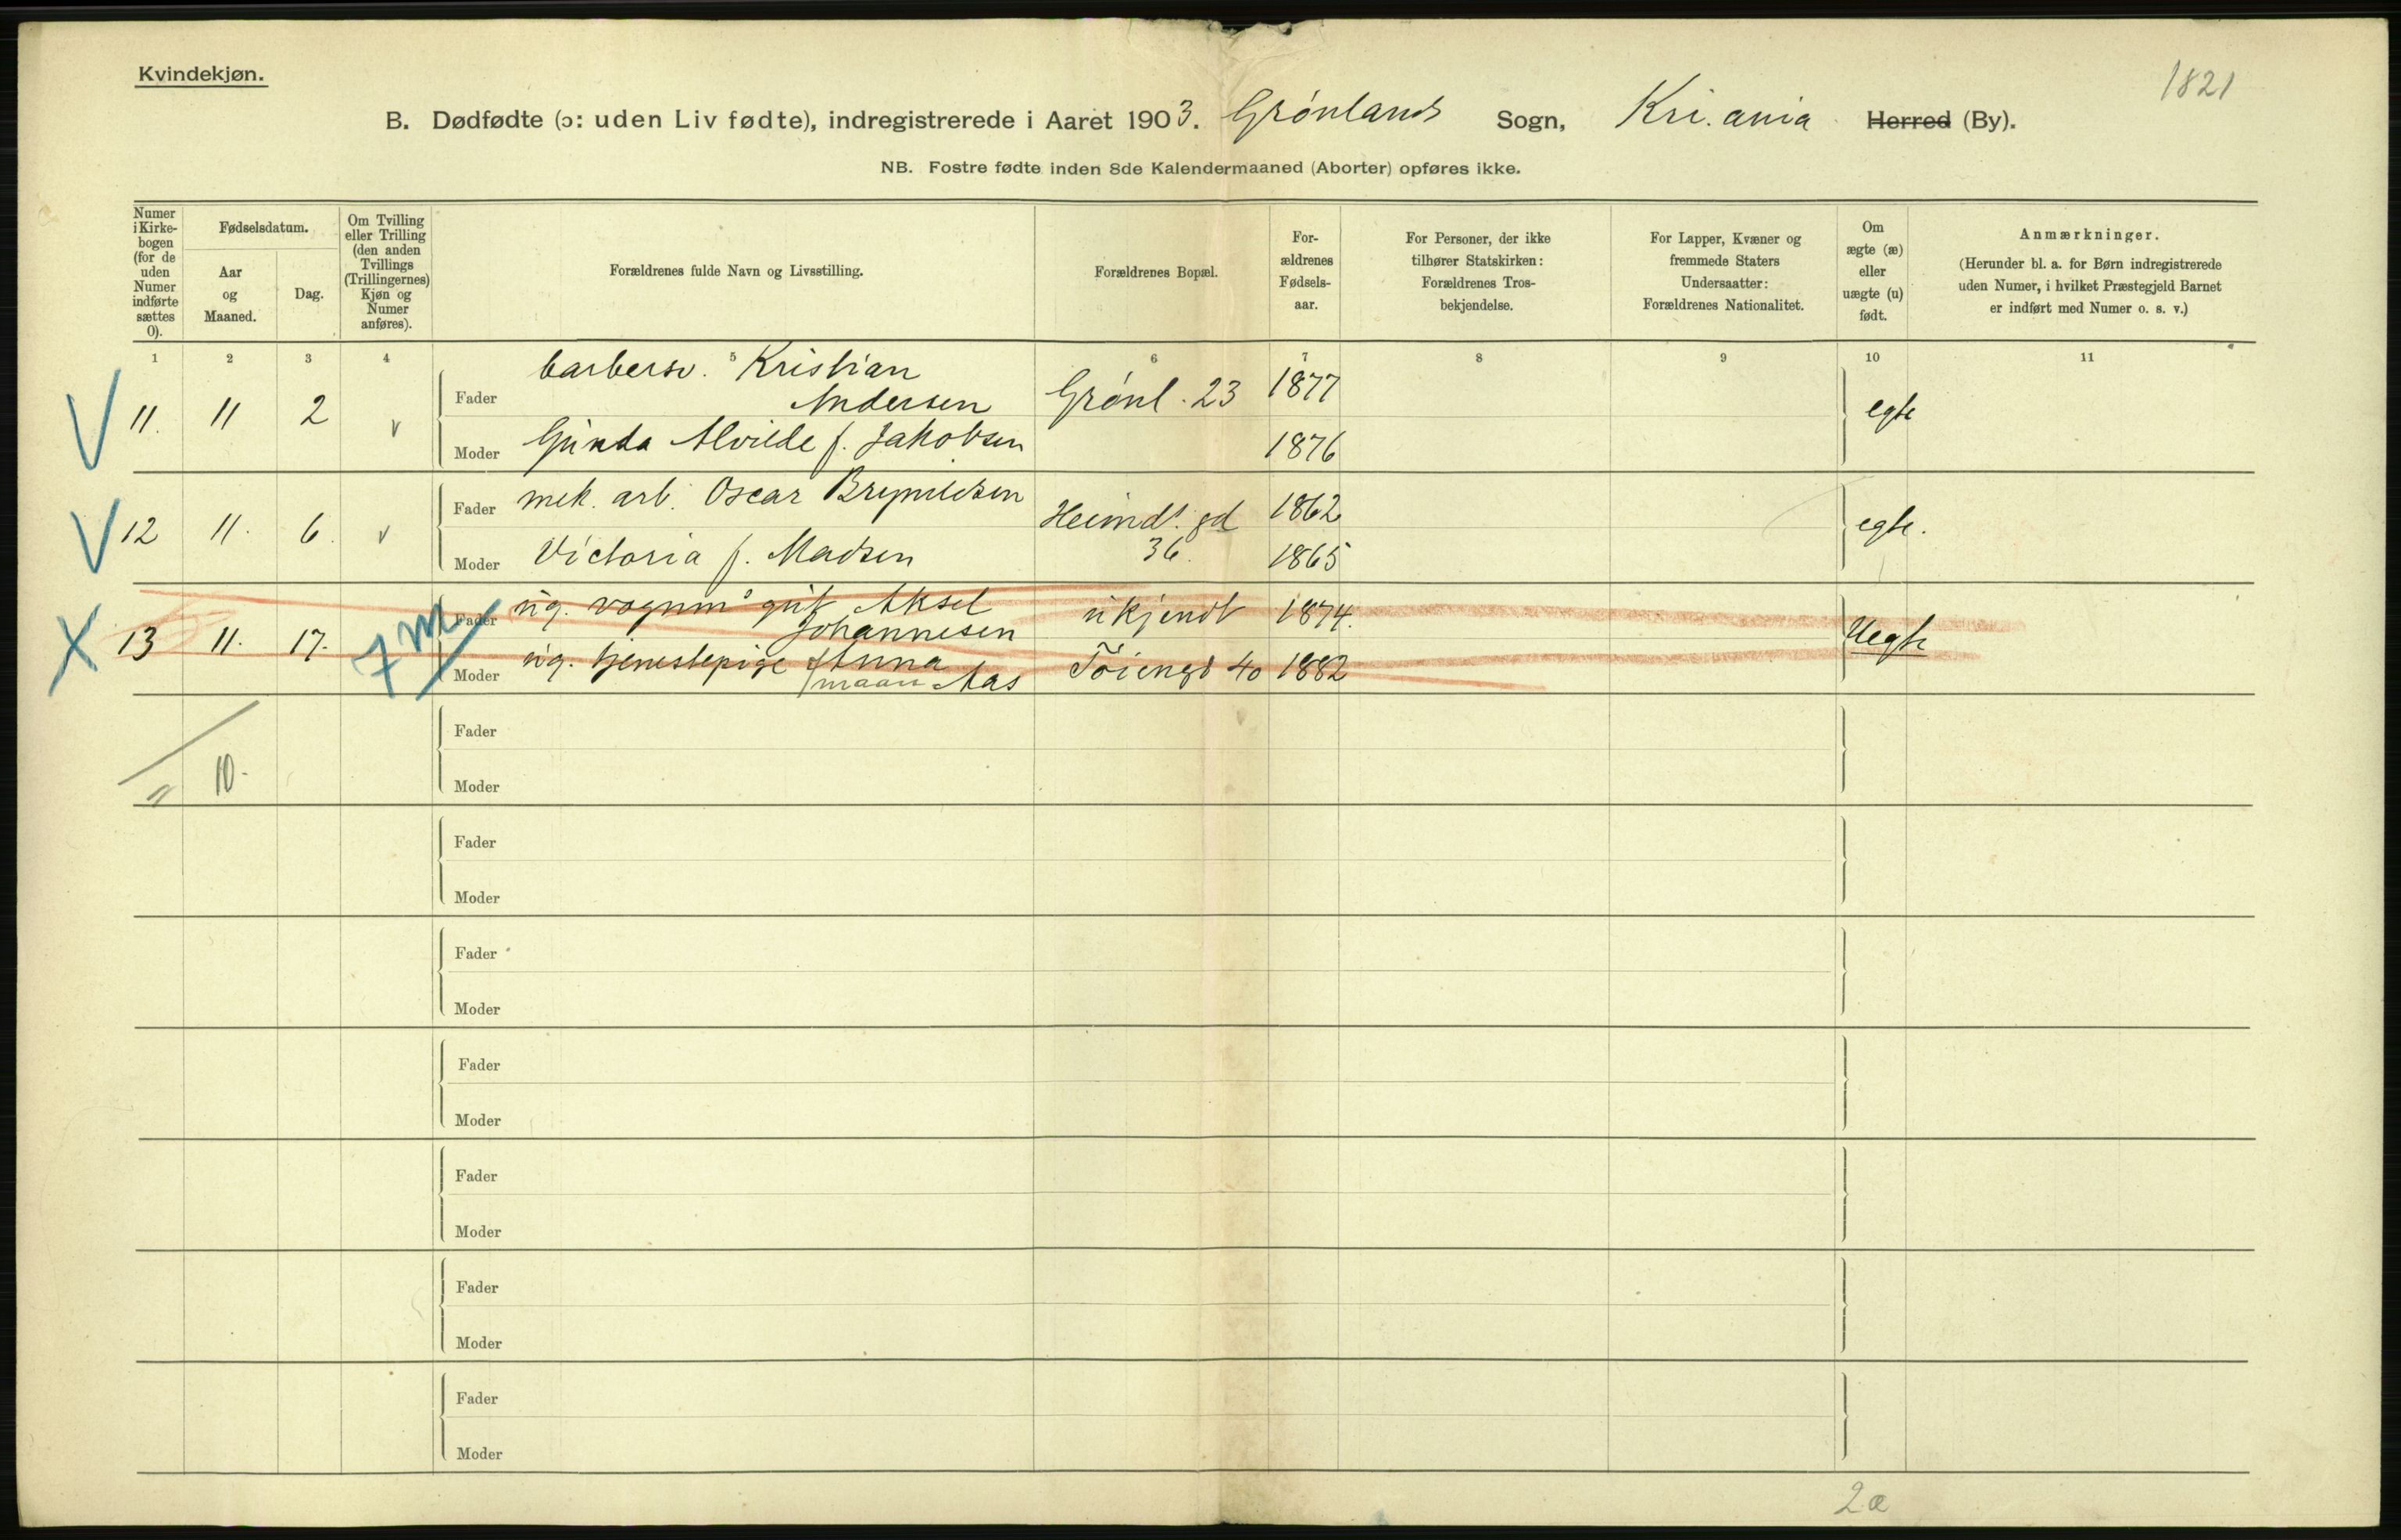 Kvindekjøn.
1821
B. Dødfødte (ɔ: uden Liv fødte), indregistrerede i Aaret 1903. Grønlands Sogn, Kri.ania Herred (By).
NB. Fostre fødte inden 8de Kalendermaaned (Aborter) opføres ikke.
Numer
i Kirke-
bogen
(for de
uden
Numer
indførte
sættes
0).
Fødselsdatum.
Aar
og
Maaned.
Dag.
Om Tvilling
eller Trilling
(den anden
Tvillings
(Trillingernes)
Kjøn og
Numer
anføres).
Forældrenes fulde Navn og Livsstilling.
Forældrenes Bopæl.
For-
ældrenes
Fødsels-
aar.
For Personer, der ikke
tilhører Statskirken:
Forældrenes Tros-
bekjendelse.
For Lapper, Kvæner og
fremmede Staters
Undersaatter:
Forældrenes Nationalitet.
Om
ægte (æ)
eller
uægte (u)
født.
Anmærkninger.
(Herunder bl. a. for Børn indregistrerede
uden Numer, i hvilket Præstegjeld Barnet
er indført med Numer o. s. v.)
1 2 3 4 5 6 7 8 9 10 11
V 11. 11 2 v
Fader barbersv. Kristian
Andersen
Grønl. 23 1877
egte
Moder Gunda Alvilde f. Jakobsen 1876
V 12 11. 6. v
Fader mek. arb. Oscar Brynildsen
Heimdl.gd
36.
1862
egte.
Moder Victoria f. Madsen 1865
X 13 11. 17. 7 m
Fader ug. vognm.gut Aksel
Johannesen
ukjendt 1874.
Uegte
Moder ug. tjenestepige Anna
Aas
Tøiengd 40 1882
10.
Fader
Moder
Fader
Moder
Fader
Moder
Fader
Moder
Fader
Moder
Fader
Moder
Fader
Moder
2æ